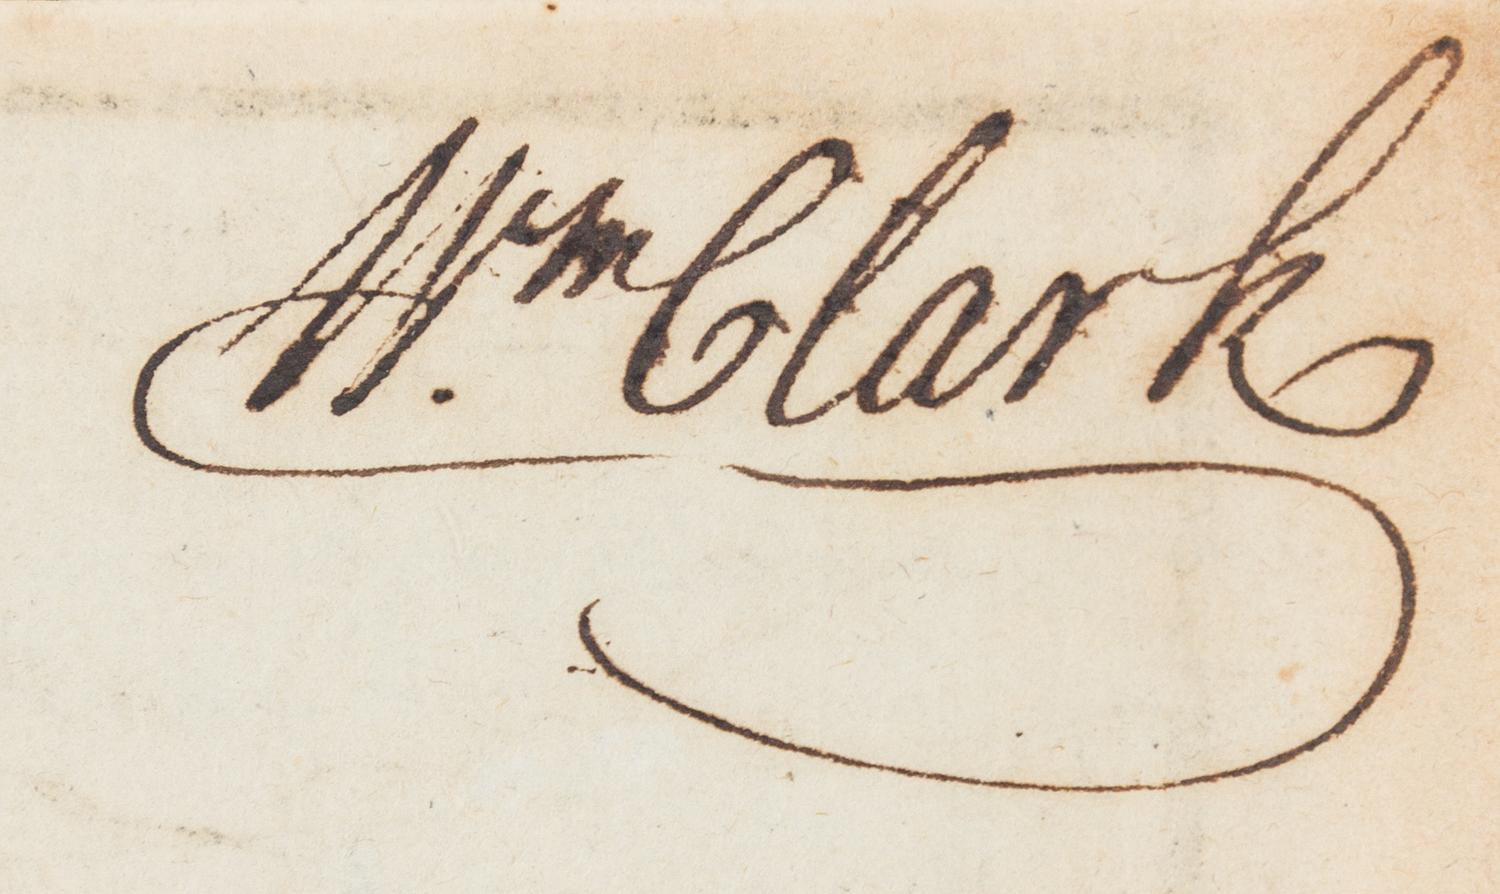 Wm. Clark